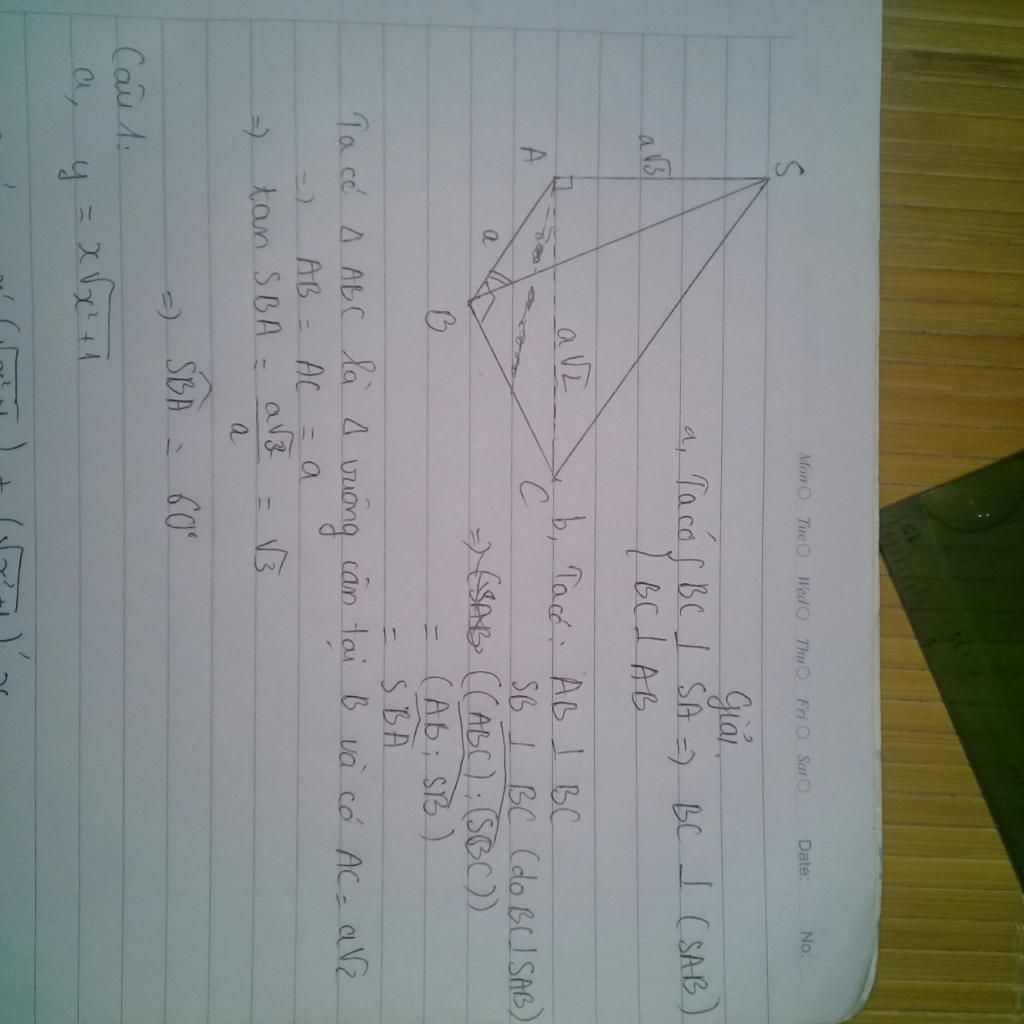 Mon Tue Wed Thu Fri Sat Date: No:
Giải
S
a, Ta có { BC ⊥ SA => BC ⊥ (SAB)
{ BC ⊥ AB
a√3
A
a√2
C
a
B
b, Ta có: AB ⊥ BC
SB ⊥ BC (do BC ⊥ SAB)
=> ((ABC); (SBC))
= (AB; SB)
= SBA
Ta có Δ ABC là Δ vuông cân tại B và có AC = a√2
=> AB = AC = a
=> tan SBA = a√3/a = √3
=> SBA = 60°
Câu 1:
a, y = x√x²+1
(√x²+1) + (√x²+1)' x